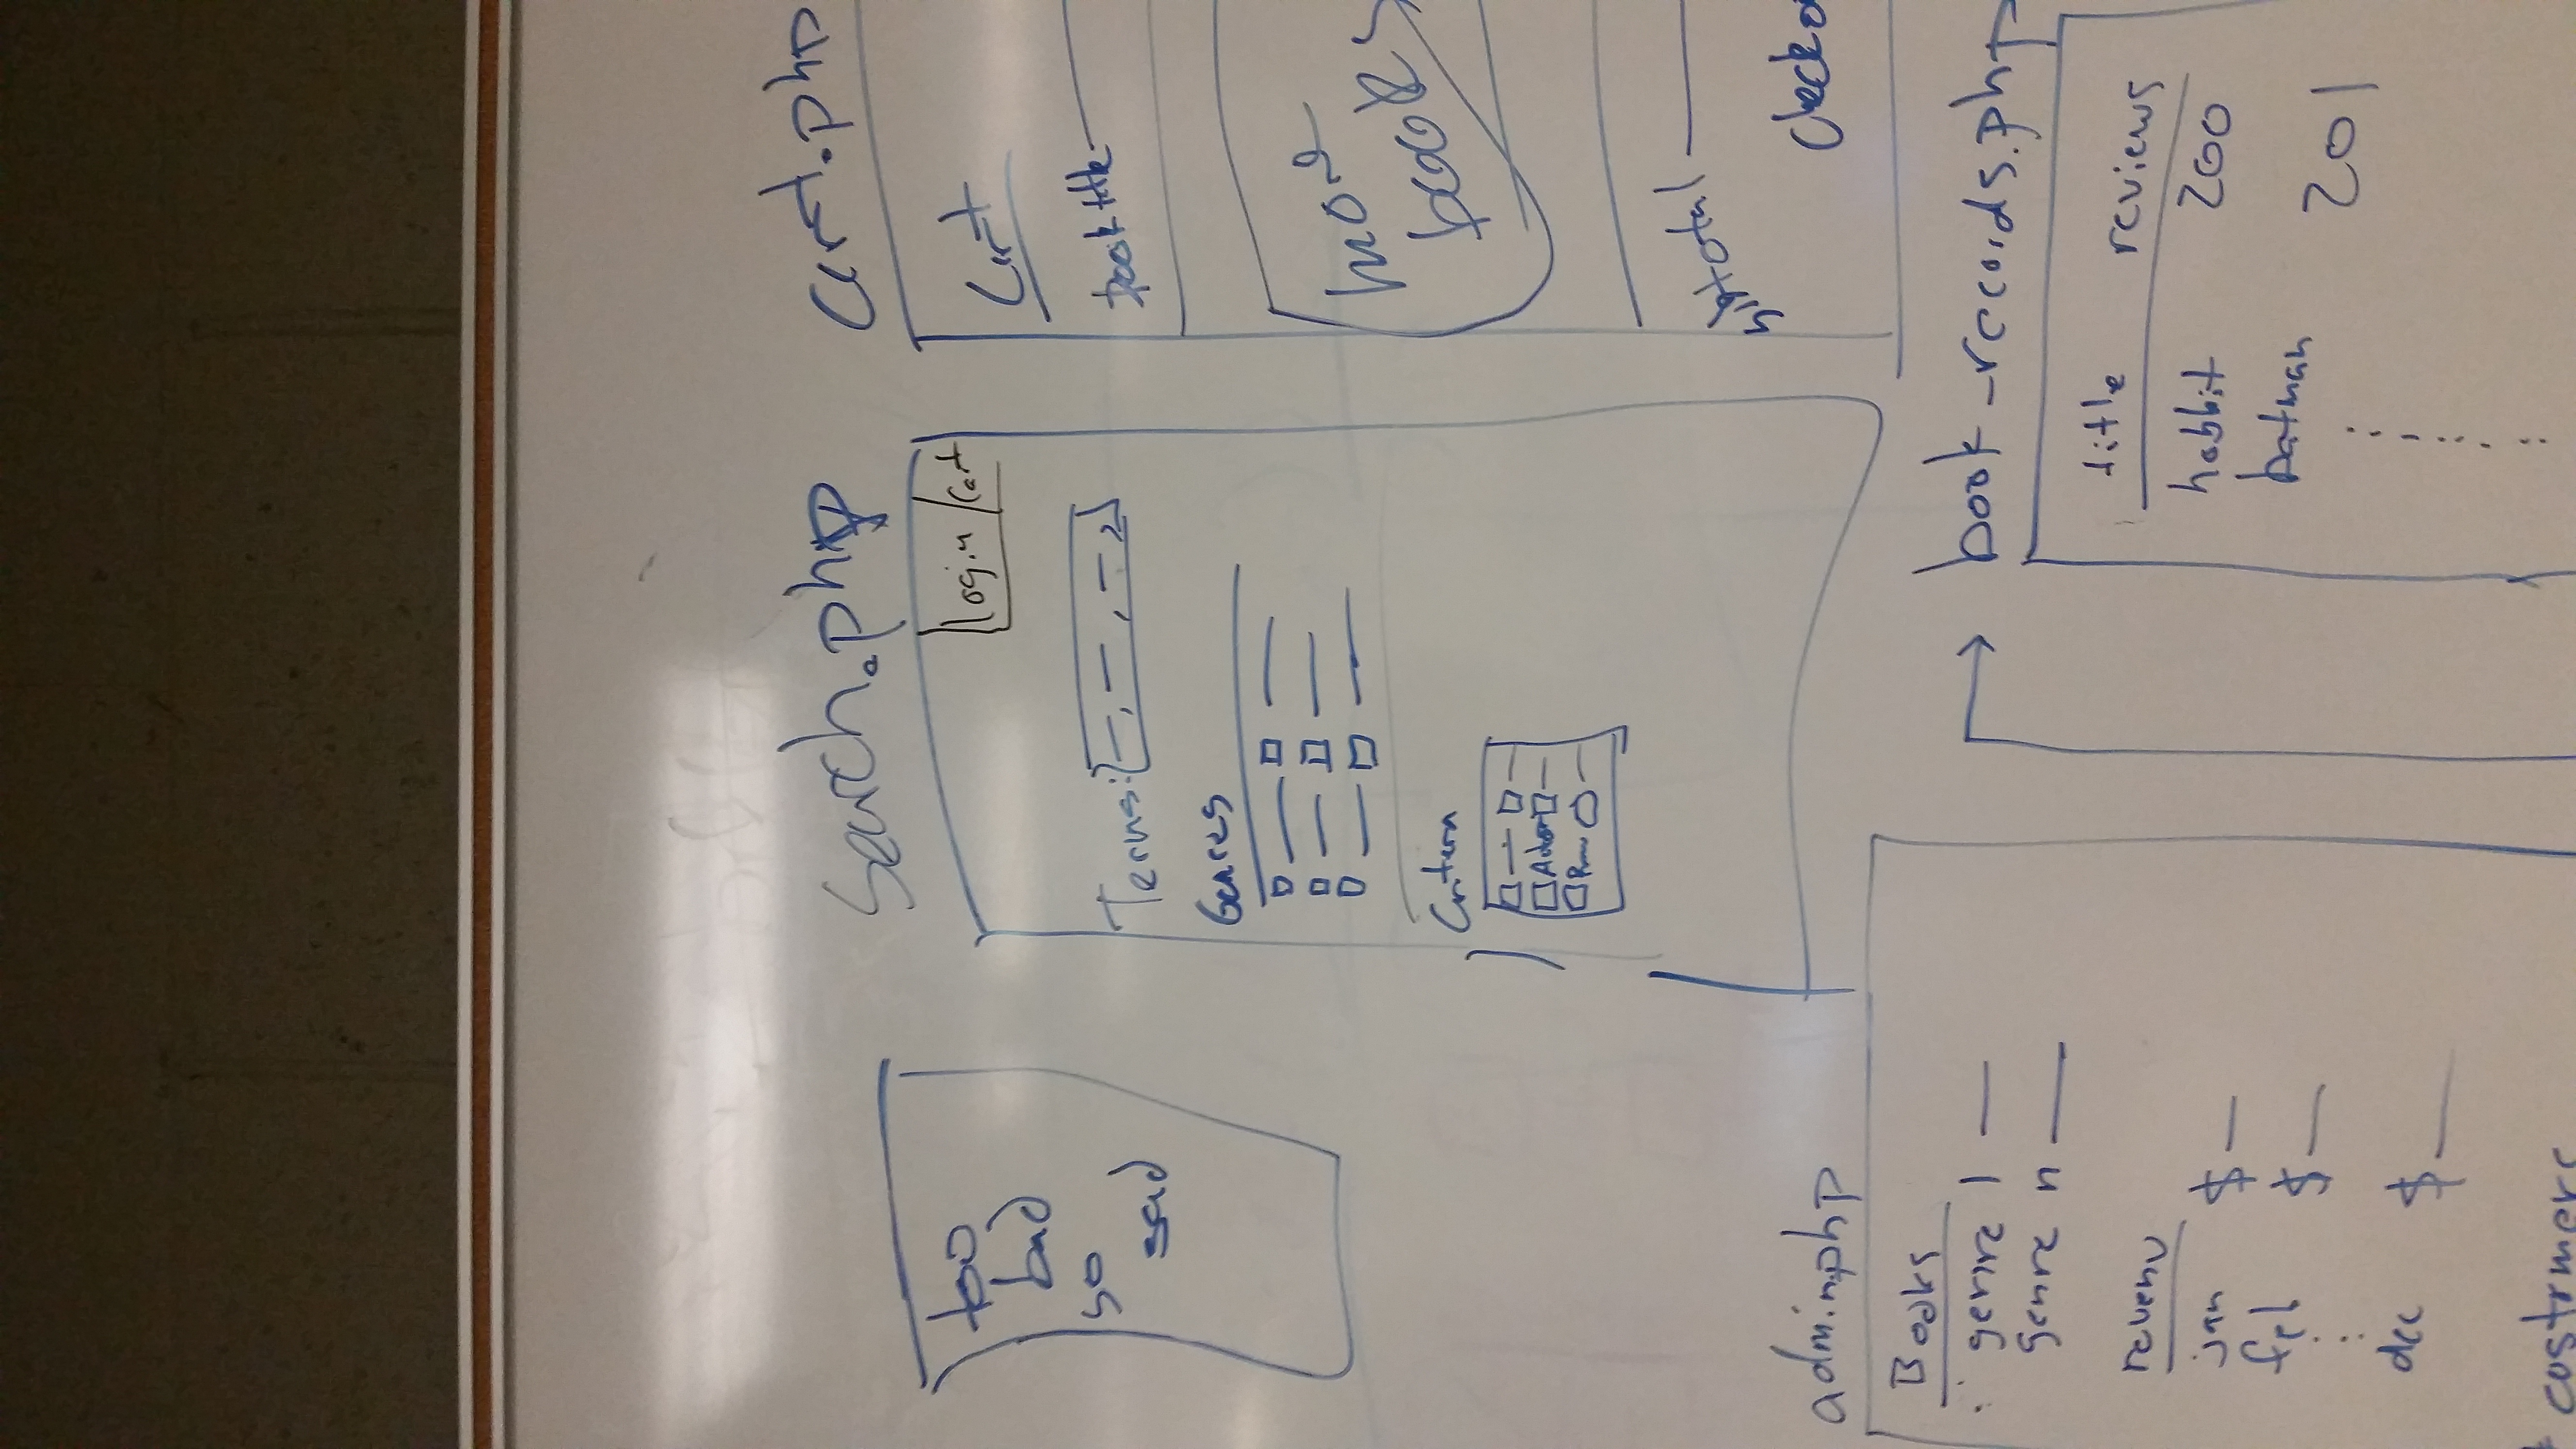 too
bad
so
sad
search.php
Login / Cart
Terms: —, —, —,
Genres
Criteria
Author
cart.php
Cart
book title
more
books
subtotal
checko
admin.php
Books
genre 1 —
genre n —
revenu
jan $ —
feb $ —
dec $ —
# costumers
book_records.php
title reviews
hobbit 200
batman
201